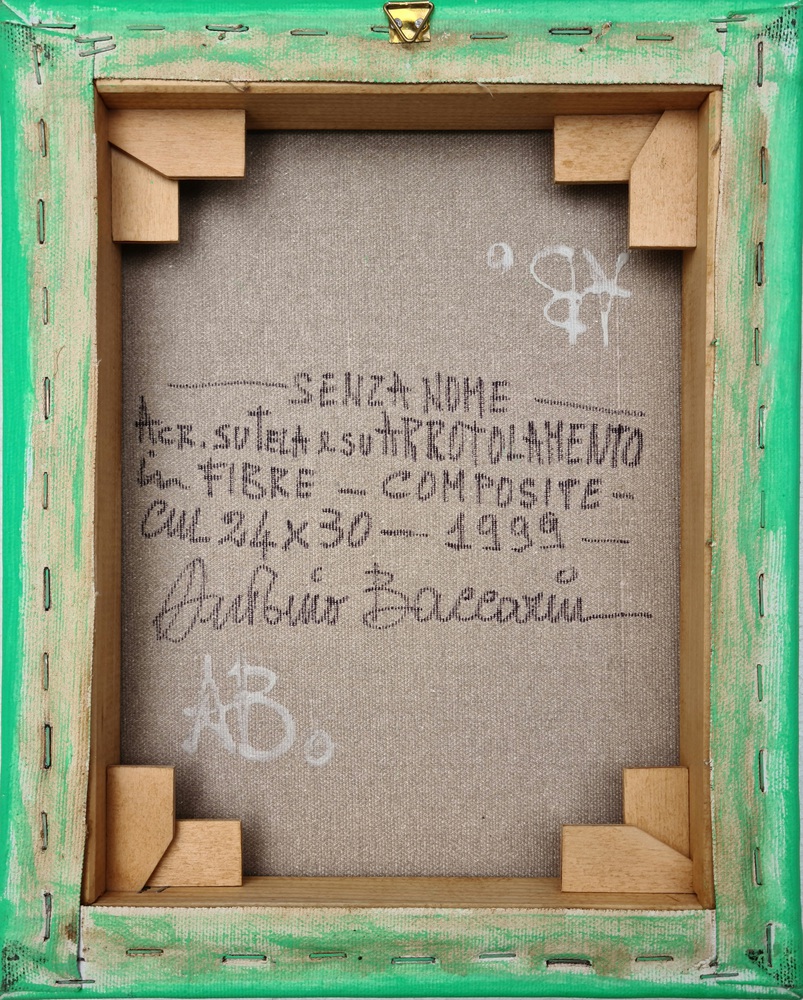 AB.
— SENZA NOME —
Acr. su Tela e su ARROTOLAMENTO
in FIBRE — COMPOSITE —
cm 24x30 — 1999 —
Baccarin
AB.